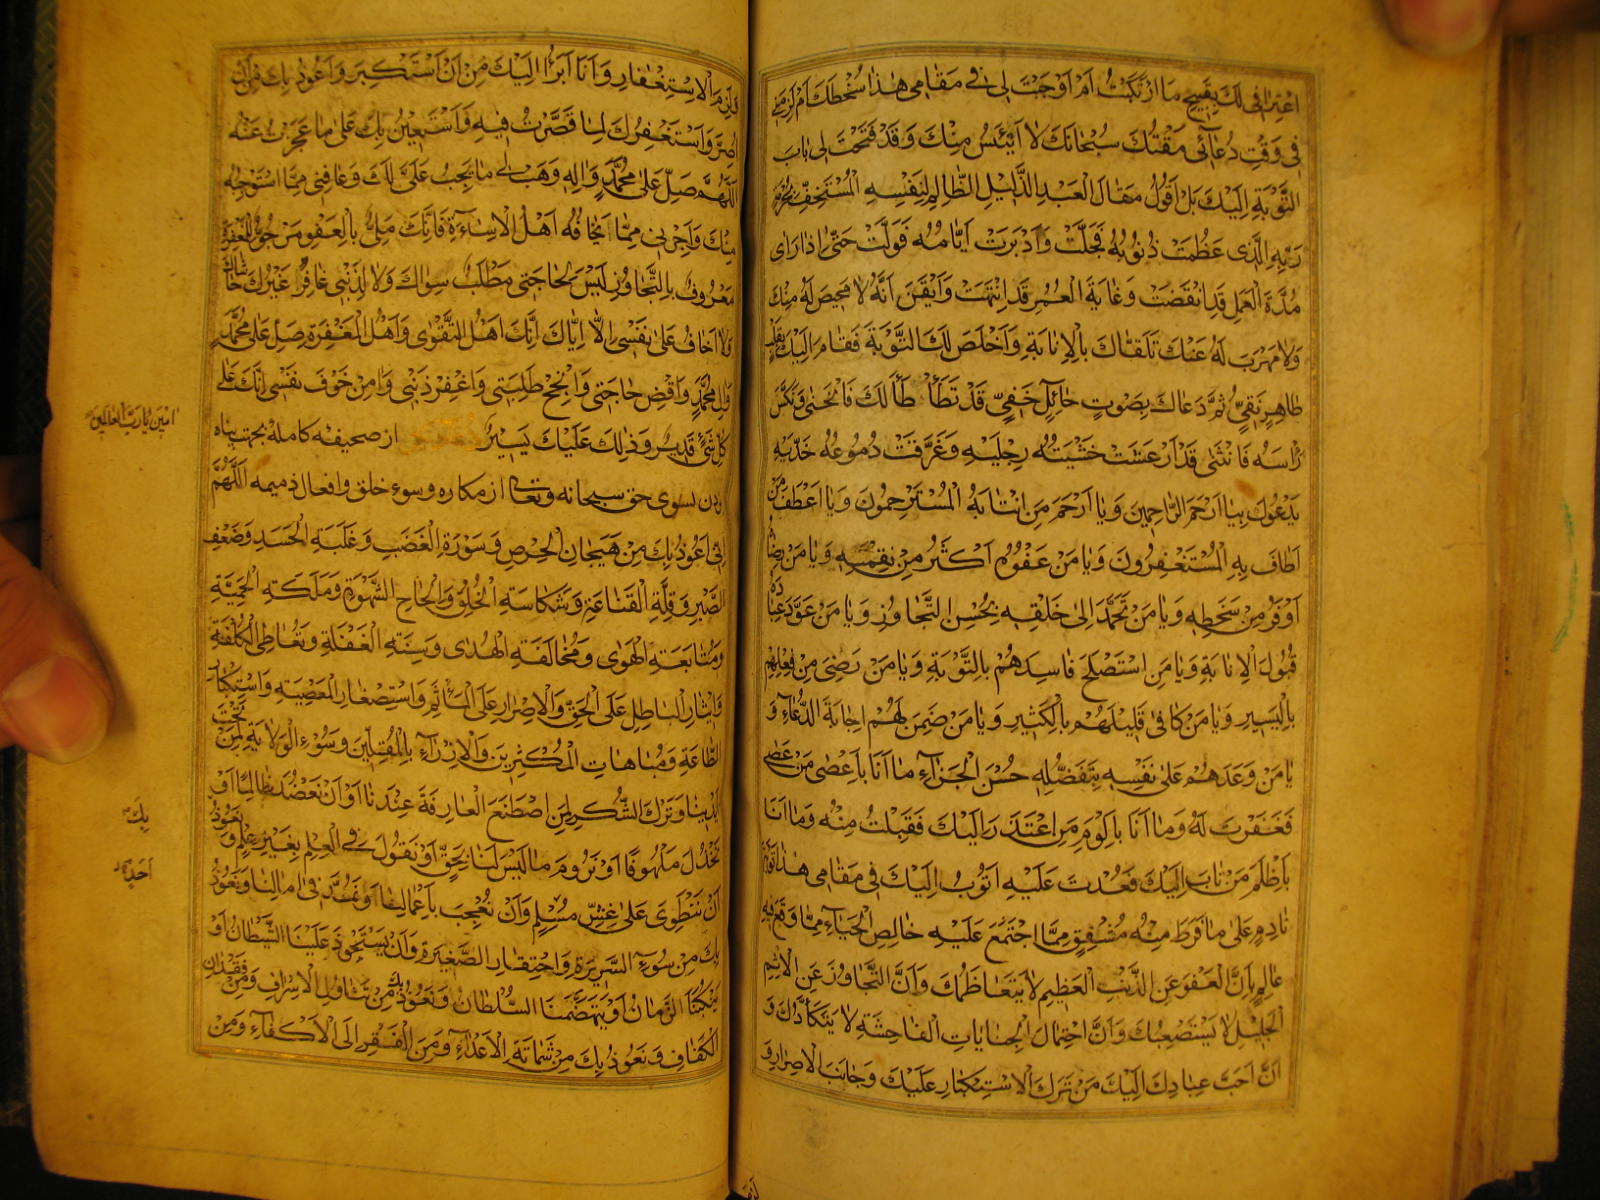 اعْتِرَافِي لَكَ بِقَبِيحِ مَا ارْتَكَبْتُ أَمْ أَوْجَبْتَ لِي فِي مَقَامِي هٰذَا سُخْطَكَ أَمْ لَزِمَنِي
فِي وَقْتِ دُعَائِي مَقْتُكَ سُبْحَانَكَ لَا أَيْئَسُ مِنْكَ وَقَدْ فَتَحْتَ لِي بَابَ
التَّوْبَةِ إِلَيْكَ بَلْ أَقُولُ مَقَالَ الْعَبْدِ الذَّلِيلِ الظَّالِمِ لِنَفْسِهِ الْمُسْتَخِفِّ بِحُرْمَةِ
رَبِّهِ الَّذِي عَظُمَتْ ذُنُوبُهُ فَجَلَّتْ وَأَدْبَرَتْ أَيَّامُهُ فَوَلَّتْ حَتَّى إِذَا رَأَى
مُدَّةَ الْعَمَلِ قَدِ انْقَضَتْ وَغَايَةَ الْعُمُرِ قَدِ انْتَهَتْ وَأَيْقَنَ أَنَّهُ لَا مَحِيصَ لَهُ مِنْكَ
وَلَا مَهْرَبَ لَهُ عَنْكَ تَلَقَّاكَ بِالْإِنَابَةِ وَأَخْلَصَ لَكَ التَّوْبَةَ فَقَامَ إِلَيْكَ بِقَلْبٍ
طَاهِرٍ نَقِيٍّ ثُمَّ دَعَاكَ بِصَوْتٍ حَائِلٍ خَفِيٍّ قَدْ تَطَأْطَأَ لَكَ فَانْحَنَى وَنَكَّسَ
رَأْسَهُ فَانْثَنَى قَدْ أَرْعَشَتْ خَشْيَتُهُ رِجْلَيْهِ وَغَرَّقَتْ دُمُوعُهُ خَدَّيْهِ
يَدْعُوكَ بِيَا أَرْحَمَ الرَّاحِمِينَ وَيَا أَرْحَمَ مَنِ انْتَابَهُ الْمُسْتَرْحِمُونَ وَيَا أَعْطَفَ مَنْ
أَطَافَ بِهِ الْمُسْتَغْفِرُونَ وَيَا مَنْ عَفْوُهُ أَكْثَرُ مِنْ نِقْمَتِهِ وَيَا مَنْ رِضَاهُ
أَوْفَرُ مِنْ سَخَطِهِ وَيَا مَنْ تَحَمَّدَ إِلَى خَلْقِهِ بِحُسْنِ التَّجَاوُزِ وَيَا مَنْ عَوَّدَ عِبَادَهُ
قَبُولَ الْإِنَابَةِ وَيَا مَنِ اسْتَصْلَحَ فَاسِدَهُمْ بِالتَّوْبَةِ وَيَا مَنْ رَضِيَ مِنْ فِعْلِهِمْ
بِالْيَسِيرِ وَيَا مَنْ كَافَى قَلِيلَهُمْ بِالْكَثِيرِ وَيَا مَنْ ضَمِنَ لَهُمْ إِجَابَةَ الدُّعَاءِ وَ
يَا مَنْ وَعَدَهُمْ عَلَى نَفْسِهِ بِتَفَضُّلِهِ حُسْنَ الْجَزَاءِ مَا أَنَا بِأَعْصَى مَنْ عَصَى
فَغَفَرْتَ لَهُ وَمَا أَنَا بِأَلْوَمِ مَنِ اعْتَذَرَ إِلَيْكَ فَقَبِلْتَ مِنْهُ وَمَا أَنَا
بِأَظْلَمِ مَنْ تَابَ إِلَيْكَ فَعُدْتَ عَلَيْهِ أَتُوبُ إِلَيْكَ فِي مَقَامِي هٰذَا تَوْبَةَ
نَادِمٍ عَلَى مَا فَرَطَ مِنْهُ مُشْفِقٍ مِمَّا اجْتَمَعَ عَلَيْهِ خَالِصِ الْحَيَاءِ مِمَّا وَقَعَ فِيهِ
عَالِمٍ بِأَنَّ الْعَفْوَ عَنِ الذَّنْبِ الْعَظِيمِ لَا يَتَعَاظَمُكَ وَأَنَّ التَّجَاوُزَ عَنِ الْإِثْمِ
الْجَلِيلِ لَا يَسْتَصْعِبُكَ وَأَنَّ احْتِمَالَ الْجِنَايَاتِ الْفَاحِشَةِ لَا يَتَكَأَّدُكَ وَ
أَنَّ أَحَبَّ عِبَادِكَ إِلَيْكَ مَنْ تَرَكَ الْاسْتِكْبَارَ عَلَيْكَ وَجَانَبَ الْإِصْرَارَ وَ
لَزِمَ الْاسْتِغْفَارَ وَأَنَا أَبْرَأُ إِلَيْكَ مِنْ أَنْ أَسْتَكْبِرَ وَأَعُوذُ بِكَ مِنْ أَنْ
أُصِرَّ وَأَسْتَغْفِرُكَ لِمَا قَصَّرْتُ فِيهِ وَأَسْتَعِينُ بِكَ عَلَى مَا عَجَزْتُ عَنْهُ
اللَّهُمَّ صَلِّ عَلَى مُحَمَّدٍ وَآلِهِ وَهَبْ لِي مَا يَجِبُ عَلَيَّ لَكَ وَعَافِنِي مِمَّا أَسْتَوْجِبُهُ
مِنْكَ وَأَجِرْنِي مِمَّا يَخَافُهُ أَهْلُ الْإِسَاءَةِ فَإِنَّكَ مَلِيءٌ بِالْعَفْوِ مَرْجُوٌّ لِلْمَغْفِرَةِ
مَعْرُوفٌ بِالتَّجَاوُزِ لَيْسَ لِحَاجَتِي مَطْلَبٌ سِوَاكَ وَلَا لِذَنْبِي غَافِرٌ غَيْرُكَ حَاشَاكَ
وَلَا أَخَافُ عَلَى نَفْسِي إِلَّا إِيَّاكَ إِنَّكَ أَهْلُ التَّقْوَى وَأَهْلُ الْمَغْفِرَةِ صَلِّ عَلَى مُحَمَّدٍ
وَآلِ مُحَمَّدٍ وَاقْضِ حَاجَتِي وَأَنْجِحْ طَلِبَتِي وَاغْفِرْ ذَنْبِي وَآمِنْ خَوْفَ نَفْسِي إِنَّكَ عَلَى
كُلِّ شَيْءٍ قَدِيرٌ وَذٰلِكَ عَلَيْكَ يَسِيرٌ از صحیفه کامله بجهت پناه
بردن بسوی حق سبحانه وتعالی از مکاره وسوء خلق وافعال ذمیمه اَللَّهُمَّ
إِنِّي أَعُوذُ بِكَ مِنْ هَيَجَانِ الْحِرْصِ وَسَوْرَةِ الْغَضَبِ وَغَلَبَةِ الْحَسَدِ وَضَعْفِ
الصَّبْرِ وَقِلَّةِ الْقَنَاعَةِ وَشَكَاسَةِ الْخُلْقِ وَإِلْحَاحِ الشَّهْوَةِ وَمَلَكَةِ الْحَمِيَّةِ
وَمُتَابَعَةِ الْهَوَى وَمُخَالَفَةِ الْهُدَى وَسِنَةِ الْغَفْلَةِ وَتَعَاطِي الْكُلْفَةِ
وَإِيثَارِ الْبَاطِلِ عَلَى الْحَقِّ وَالْإِصْرَارِ عَلَى الْمَأْثَمِ وَاسْتِصْغَارِ الْمَعْصِيَةِ وَاسْتِكْبَارِ
الطَّاعَةِ وَمُبَاهَاتِ الْمُكْثِرِينَ وَالْإِزْرَاءِ بِالْمُقِلِّينَ وَسُوءِ الْوِلَايَةِ لِمَنْ تَحْتَ
أَيْدِينَا وَتَرْكِ الشُّكْرِ لِمَنِ اصْطَنَعَ الْعَارِفَةَ عِنْدَنَا أَوْ أَنْ نَعْضُدَ ظَالِمًا أَوْ
نَخْذُلَ مَلْهُوفًا أَوْ نَرُومَ مَا لَيْسَ لَنَا بِحَقٍّ أَوْ نَقُولَ فِي الْعِلْمِ بِغَيْرِ عِلْمٍ وَنَعُوذُ
أَنْ نَنْطَوِيَ عَلَى غِشِّ مُسْلِمٍ وَأَنْ نُعْجَبَ بِأَعْمَالِنَا أَوْ نَمُدَّ فِي آمَالِنَا وَنَعُوذُ
بِكَ مِنْ سُوءِ السَّرِيرَةِ وَاحْتِقَارِ الصَّغِيرَةِ وَأَنْ يَسْتَحْوِذَ عَلَيْنَا الشَّيْطَانُ أَوْ
يَنْكُبَنَا الزَّمَانُ أَوْ يَتَهَضَّمَنَا السُّلْطَانُ وَنَعُوذُ بِكَ مِنْ تَنَاوُلِ الْإِسْرَافِ وَمِنْ فِقْدَانِ
الْكَفَافِ وَنَعُوذُ بِكَ مِنْ شَمَاتَةِ الْأَعْدَاءِ وَمِنَ الْفَقْرِ إِلَى الْأَكْفَاءِ وَمِنْ
امين يا رب العالمين
بك
احد